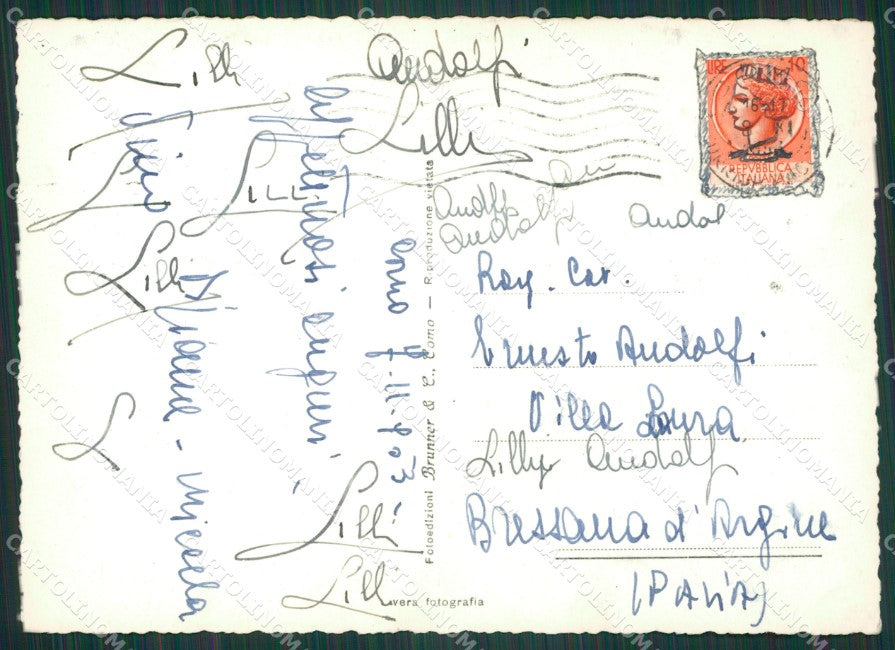 Lilli
Andolfi
Lilli
LIRE 10
REPVBBLICA
ITALIANA
Lilli
Andolfi
Andolfi
Andol
Lilli
Como 9.11.903
affettuosi auguri
Gianna - Micaela
Rag. Cav.
Ernesto Andolfi
Villa Laura
Lilly Andolf
Bressana d'Argine
(PAVIA)
Lilli
Lilli
Fotoedizioni Brunner & C., Como — Riproduzione vietata
vera fotografia
CARTOLINOMANIA